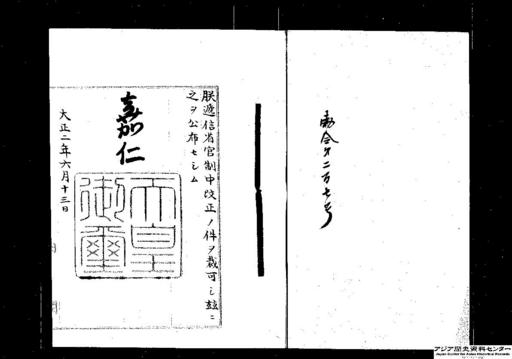 勅令第二百七号
朕遞信省官制中改正ノ件ヲ裁可シ茲ニ
之ヲ公布セシム
嘉仁
天皇
御璽
大正二年六月十三日
アジア歴史資料センター
Japan Center for Asian Historical Records